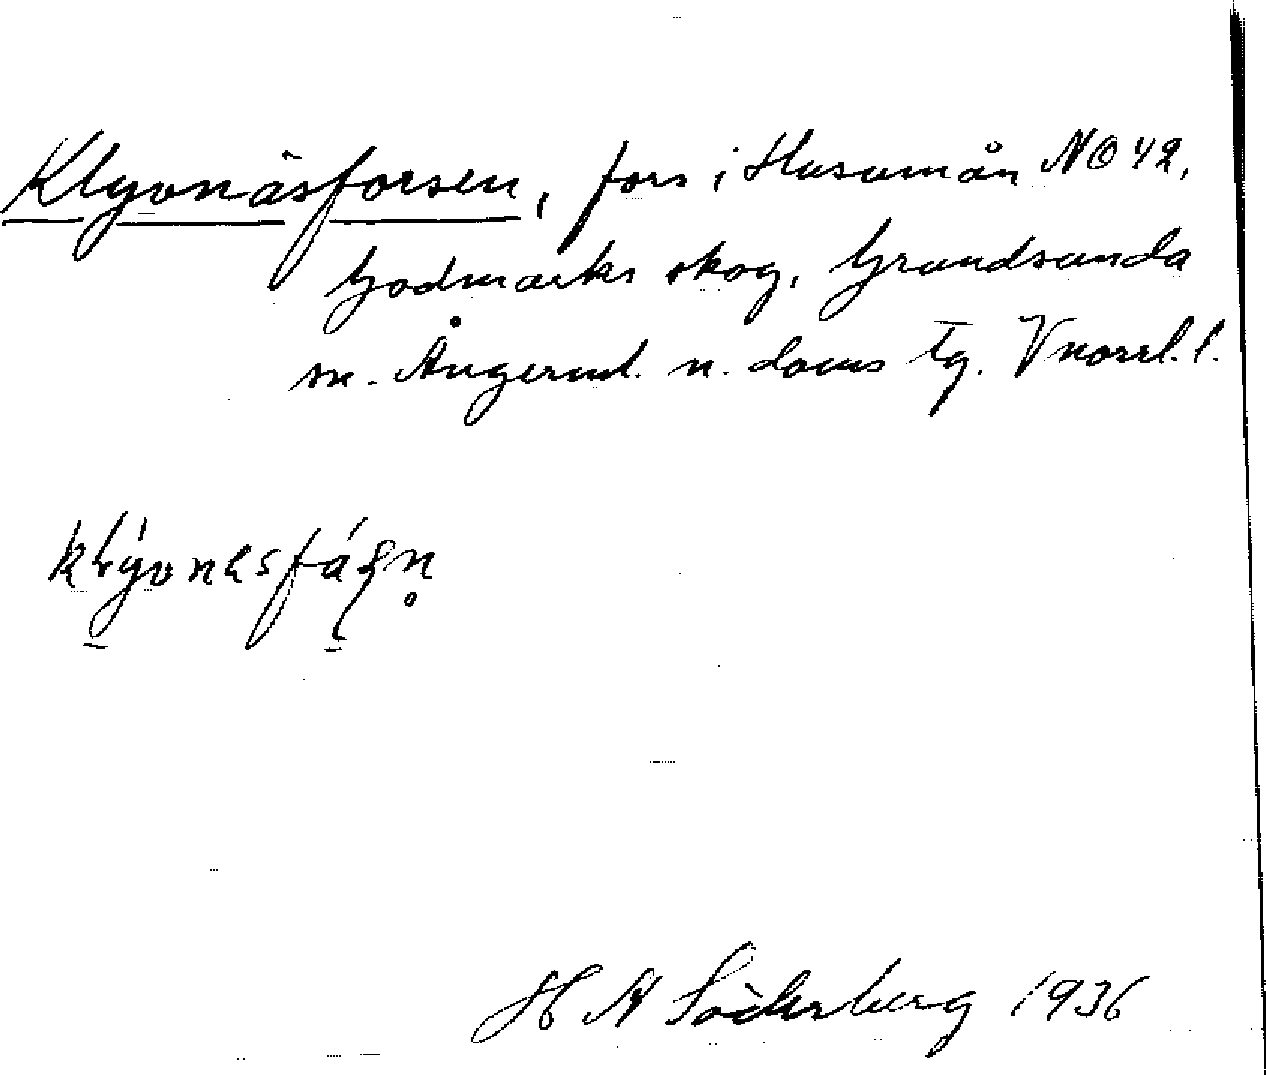 Klyvnäsforsen, fors i Husumån NO 42,
Godmarks skog, Grundsunda
sn. Ångerml. n. doms tg. Vnorrl. l.
H N Söderberg 1936